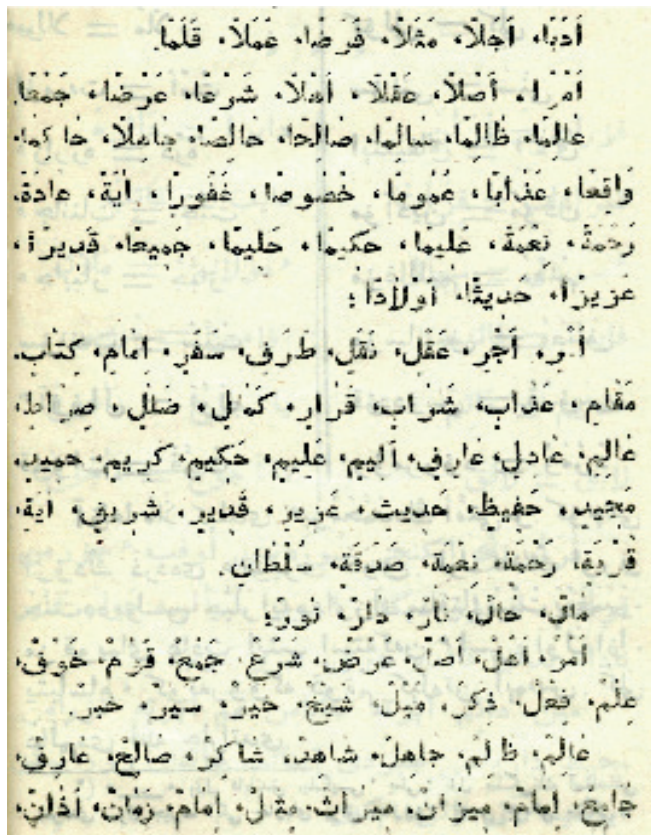 أَدَبًا، أَجَلاً، مَثَلاً، فَرَضًا، عَمَلاً، قَلَمًا.
أَمْرًا، أَصْلاً، عَقْلاً، أَهْلاً، شَرْعًا، عَرْضًا، جَمْعًا.
عَالِمًا، ظَالِمًا، سَالِمًا، صَالِحًا، خَالِصًا، جَاهِلاً، حَاكِمًا،
وَاقِعًا، عَذَابًا، عُمُومًا، خُصُوصًا، غَفُورًا، ايَةً، عَادَةً.
رَحْمَةً، نِعْمَةً، عَلِيمًا، حَكِيمًا، حَلِيمًا، جَمِيعًا، قَدِيرًا،
عَزِيزًا، حَدِيثًا، أَوْلاَدًا:
أَجْرِ، عَقْلِ، نَقْلِ، طَرَفِ، سَفَرِ، اِمَامِ، كِتَابِ.
مَقَامِ، عَذَابِ، شَرَابِ، قَرَارِ، صِرَاطِ،
عَالِمِ، عَادِلِ، عَارِفِ، أَلِيمِ، عَلِيمِ، حَكِيمِ، كَرِيمِ،
مَجِيدِ، حَفِيظِ، حَدِيثِ، عَزِيزِ، قَدِيرِ، شَرِيفِ، ايَةِ،
قَرْيَةِ، رَحْمَةِ، نِعْمَةِ، صَدَقَةِ، سُلْطَانِ.
مَالٌ، حَالٌ، نَارٌ، دَارٌ، نُورٌ:
أَمْرٌ، أَصْلٌ، عَرْضٌ، شَرْعٌ، جَمْعٌ، خَوْفٌ،
عِلْمٌ، فِعْلٌ، ذِكْرٌ، مَيْلٌ، شَيْخٌ، خَيْرٌ، سَيْرٌ،
عَالِمٌ، ظَالِمٌ، جَاهِلٌ، شَاهِدٌ، شَاكِرٌ، صَالِحٌ، عَارِفٌ،
جَامِعٌ، اِمَامٌ، مِيرَاثٌ، زَمَانٌ، أَذَانٌ،